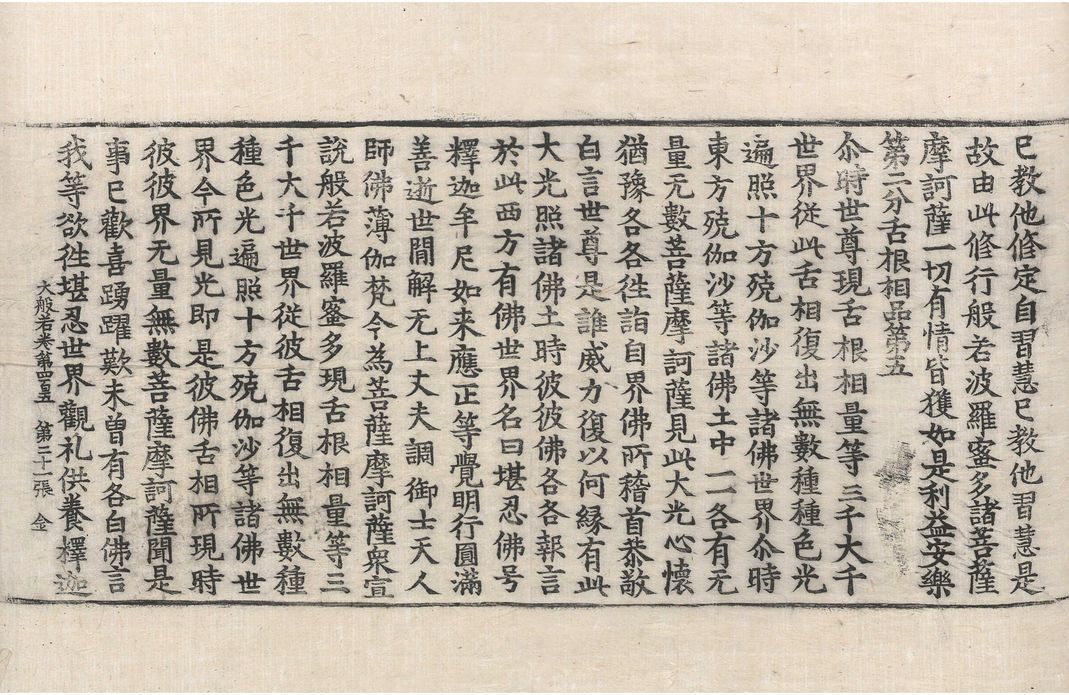 已教他修定自習慧已教他習慧是
故由此修行般若波羅蜜多諸菩薩
摩訶薩一切有情皆獲如是利益安樂
第二分舌根相品第五
尒時世尊現舌根相量等三千大千
世界従此舌相復出無數種種色光
遍照十方殑伽沙等諸佛世界尒時
東方殑伽沙等諸佛土中一一各有无
量无數菩薩摩訶薩見此大光心懷
猶豫各各徃詣自界佛所稽首恭敬
白言世尊是誰威力復以何緣有此
大光照諸佛土時彼彼佛各各報言
於此西方有佛世界名曰堪忍佛号
釋迦牟尼如来應正等覺明行圓滿
善逝世間解无上丈夫調御士天人
師佛薄伽梵今為菩薩摩訶薩衆宣
說般若波羅蜜多現舌根相量等三
千大千世界従彼舌相復出無數種
種色光遍照十方殑伽沙等諸佛世
界今所見光即是彼佛舌相所現時
彼彼界无量無數菩薩摩訶薩聞是
事已歡喜踴躍歎未曾有各白佛言
大般若卷第四百五 第二十二張 金
我等欲徃堪忍世界觀礼供養釋迦